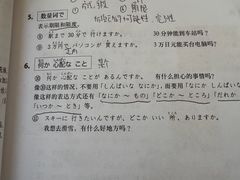 5. 数量词で
表示期限和限度。
① 駅まで 30分で 行けますか。 30分钟能到车站吗？
② 3万円で パソコンが 買えますか。 3万日元能买台电脑吗？
6. 何か 心配な こと
① 何か 心配な ことが あるんですか。 有什么担心的事情吗？
像①这样的情况，不要用「しんぱいな なにか」，而要用「なにか しんぱい
像这样的表达方式还有「なにか ～ もの」「どこか ～ ところ」「だれか
「いつか ～ とき」等。
② スキーに 行きたいんですが、どこか いい 所、ありますか。
我想去滑雪，有什么好地方吗？